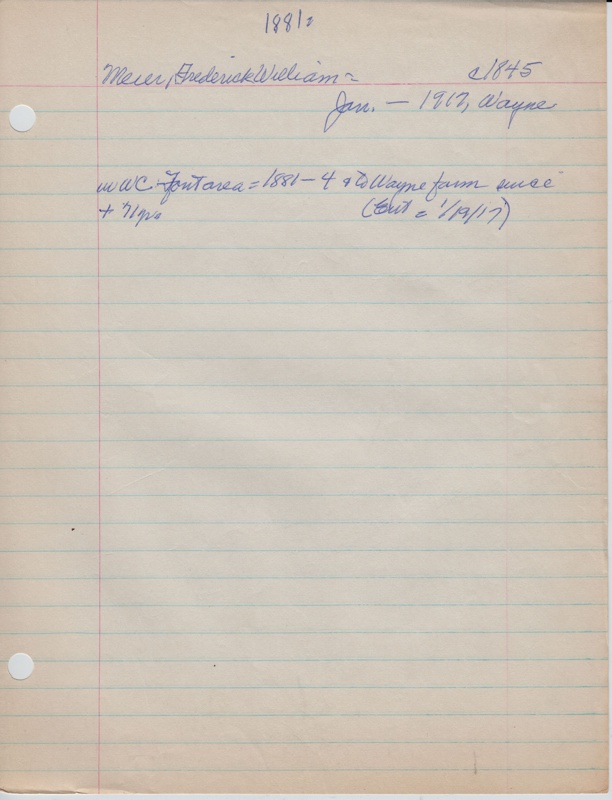 1881:
Meier, Frederick William = c1845
Jan. — 1917, Wayne
in WC - Font area = 1881-4 & to Wayne farm since
+ 71 yrs (Ent = 1/19/17)